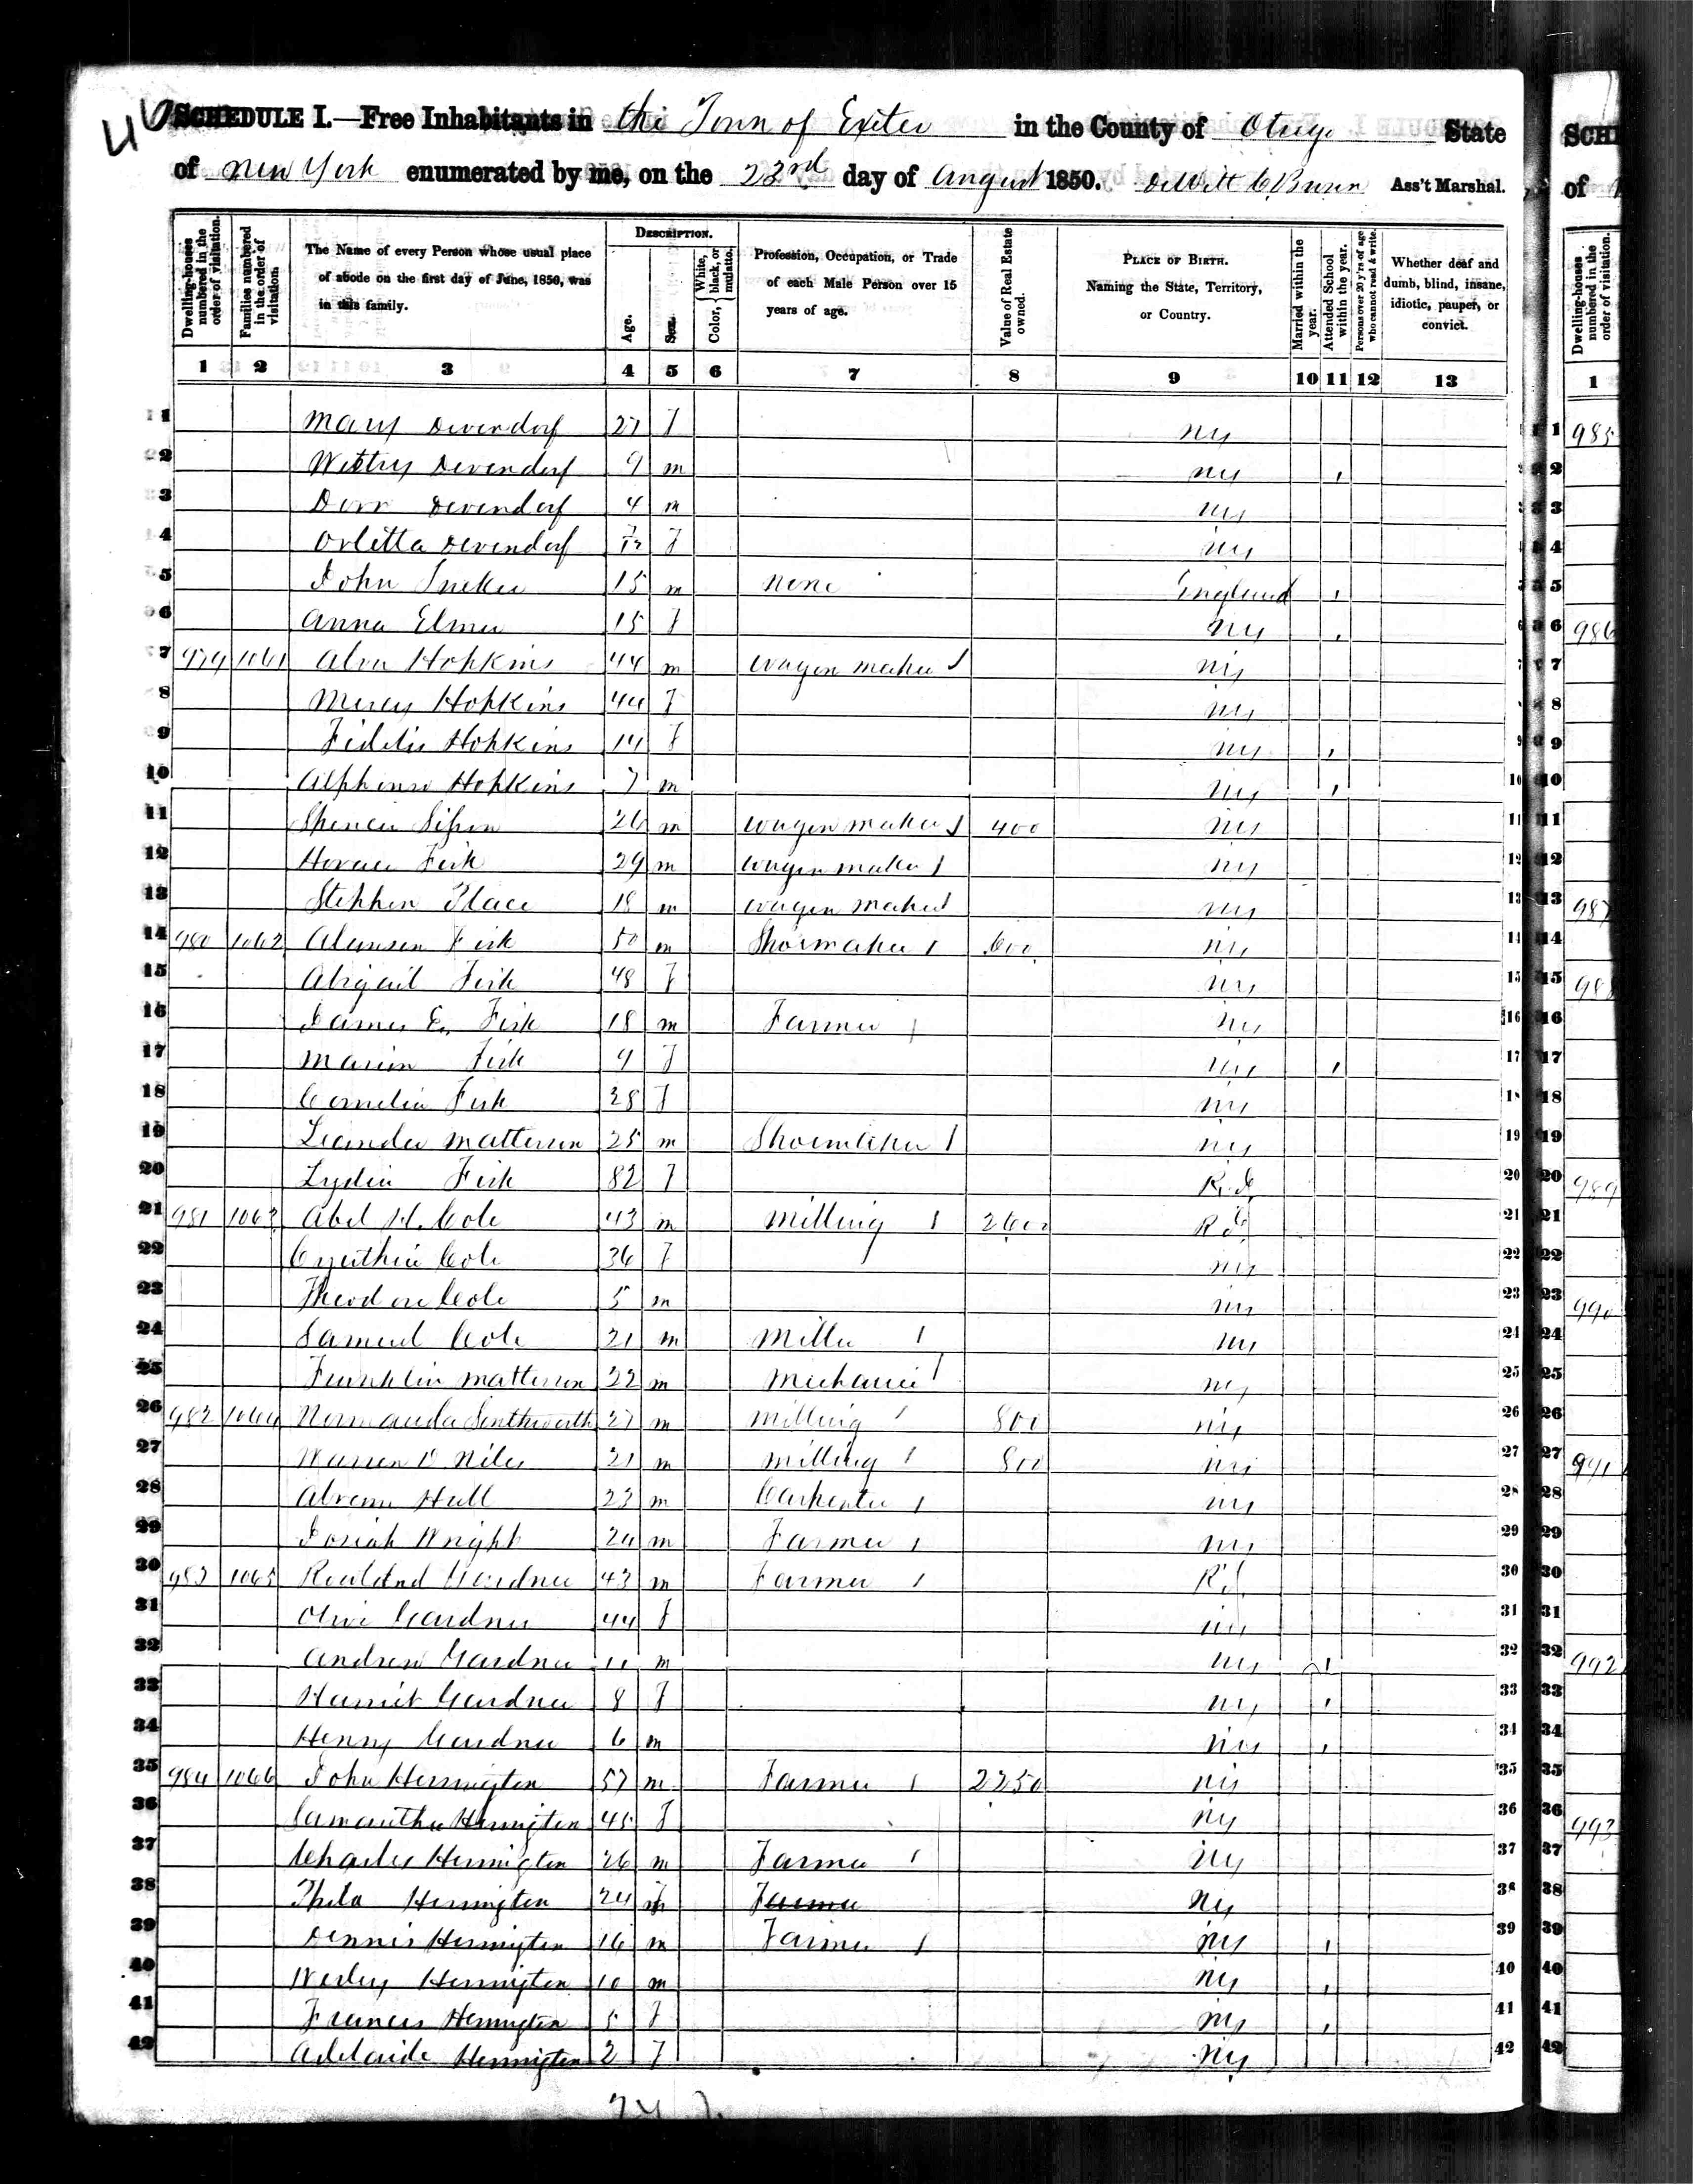 46
SCHEDULE I.—Free Inhabitants in the Town of Exeter in the County of Otsego State
of New York enumerated by me, on the 23rd day of August 1850. DeWitt C Bunn Ass't Marshal.
Dwelling-houses numbered in the order of visitation.
Families numbered in the order of visitation.
The Name of every Person whose usual place of abode on the first day of June, 1850, was in this family.
DESCRIPTION.
Age.
Sex.
Color, { White, black, or mulatto.
Profession, Occupation, or Trade of each Male Person over 15 years of age.
Value of Real Estate owned.
PLACE OF BIRTH. Naming the State, Territory, or Country.
Married within the year.
Attended School within the year.
Persons over 20 y'rs of age who cannot read & write.
Whether deaf and dumb, blind, insane, idiotic, pauper, or convict.
1 2 3 4 5 6 7 8 9 10 11 12 13
1 Mary Devendorf 27 F ny 1
2 Devendorf 9 m ny 2
3 Dorr Devendorf 4 m ny 3
4 Orletta Devendorf F ny 4
5 John 15 m none England 5
6 Anna Elmer 15 F ny 6
7 979 1061 Alva Hopkins 44 m wagon maker ny 7
8 Mercy Hopkins 44 F ny 8
9 Fidelis Hopkins 14 F ny 9
10 Alphonso Hopkins 7 m ny 10
11 Spencer 26 m wagon maker 400 ny 11
12 Horace Fisk 29 m wagon maker ny 12
13 Stephen Place 18 m wagon maker ny 13
14 980 1062 Alanson Fisk 50 m Shoemaker 600 ny 14
15 Abigail Fisk 48 F ny 15
16 James E. Fisk 18 m Farmer ny 16
17 Marion Fisk 9 F ny 17
18 Cornelia Fisk 28 F ny 18
19 Leander Matterson 25 m Shoemaker ny 19
20 Lydia Fisk 82 F R.I. 20
21 981 1063 Abel H. Cole 43 m Milling 2600 R I 21
22 Cynthia Cole 36 F ny 22
23 Theodore Cole 5 m ny 23
24 Samuel Cole 21 m Miller ny 24
25 Franklin Matterson 22 m Mechanic ny 25
26 982 1064 Southworth 27 m Milling 800 ny 26
27 Warren D Niles 21 m Milling 800 ny 27
28 Hull 23 m Carpenter ny 28
29 Josiah Wright 24 m Farmer ny 29
30 983 1065 Gardner 43 m Farmer R.I. 30
31 Olive Gardner 44 F ny 31
32 Andrew Gardner 11 m ny 32
33 Harriet Gardner 8 F ny 33
34 Henry Gardner 6 m ny 34
35 984 1066 John Herrington 57 m Farmer 2250 ny 35
36 Samantha Herrington 45 F ny 36
37 Charles Herrington 26 m Farmer ny 37
38 Phila Herrington 24 F Farmer ny 38
39 Dennis Herrington 16 m Farmer ny 39
40 Wesley Herrington 10 m ny 40
41 Frances Herrington 5 F ny 41
42 Adelaide Herrington 2 F ny 42
SCHE
of
Dwelling-houses numbered in the order of visitation.
1
1 985
2
3
4
5
6 986
7
8
9
10
11
12
13 987
14
15 988
16
17
18
19
20 989
21
22
23 990
24
25
26
27 991
28
29
30
31
32 992
33
34
35
36 993
37
38
39
40
41
42